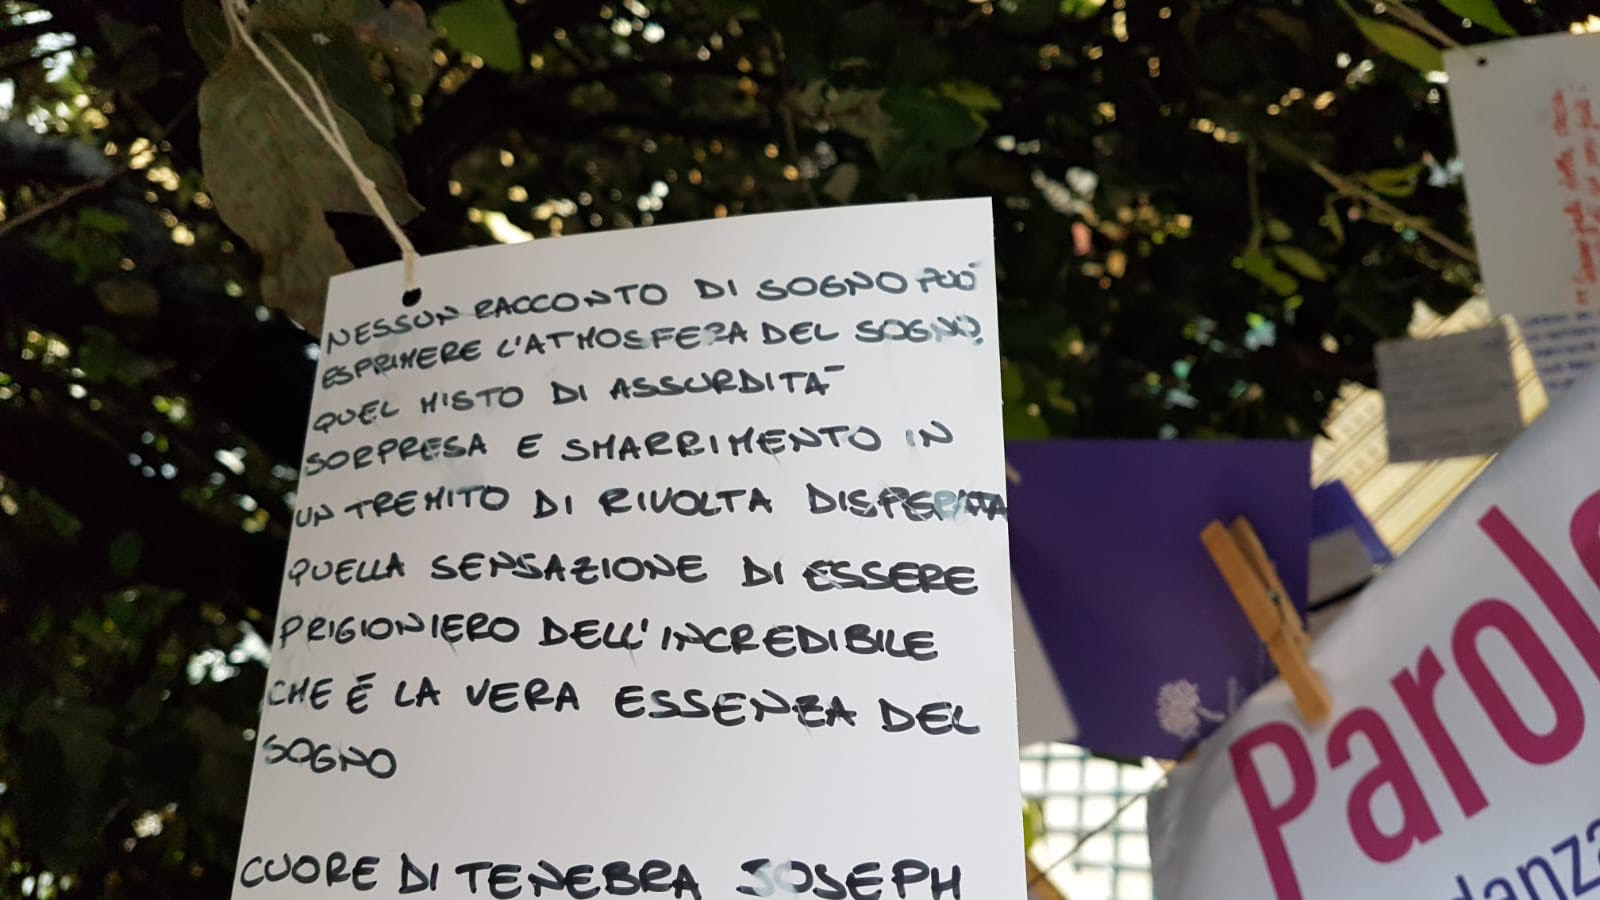 NESSUN RACCONTO DI SOGNO PUÒ
ESPRIMERE L'ATMOSFERA DEL SOGNO,
QUEL MISTO DI ASSURDITÀ
SORPRESA E SMARRIMENTO IN
UN TREMITO DI RIVOLTA DISPERATA
QUELLA SENSAZIONE DI ESSERE
PRIGIONIERO DELL'INCREDIBILE
CHE È LA VERA ESSENZA DEL
SOGNO
CUORE DI TENEBRA JOSEPH
Parole
danza